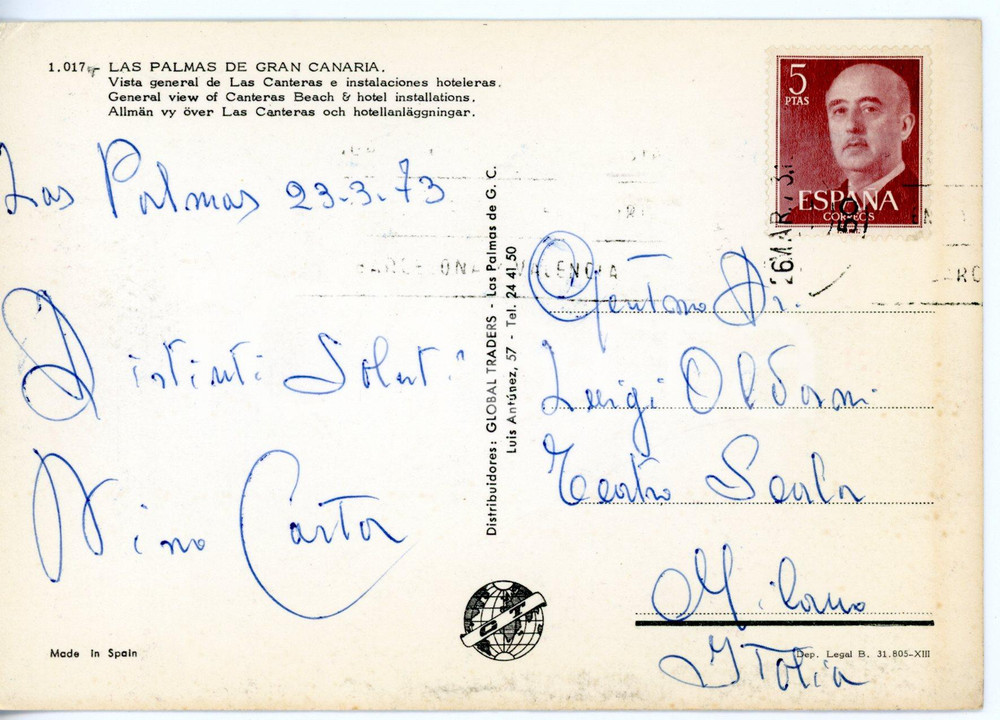 1.017 - LAS PALMAS DE GRAN CANARIA.
Vista general de Las Canteras e instalaciones hoteleras.
General view of Canteras Beach & hotel installations.
Allmän vy över Las Canteras och hotellanläggningar.
Las Palmas 23.3.73
Distinti Saluti
Nino Carta
Distribuidores: GLOBAL TRADERS - Las Palmas de G. C.
Luis Antúnez, 57 - Tel. 24 41 50
5
PTAS
ESPAÑA
CORREOS
26 MAR. 73
VALENCIA
Dr.
Luigi Oldani
Teatro Scala
Milano
Italia
GT
Made in Spain
Dep. Legal B. 31.805-XIII